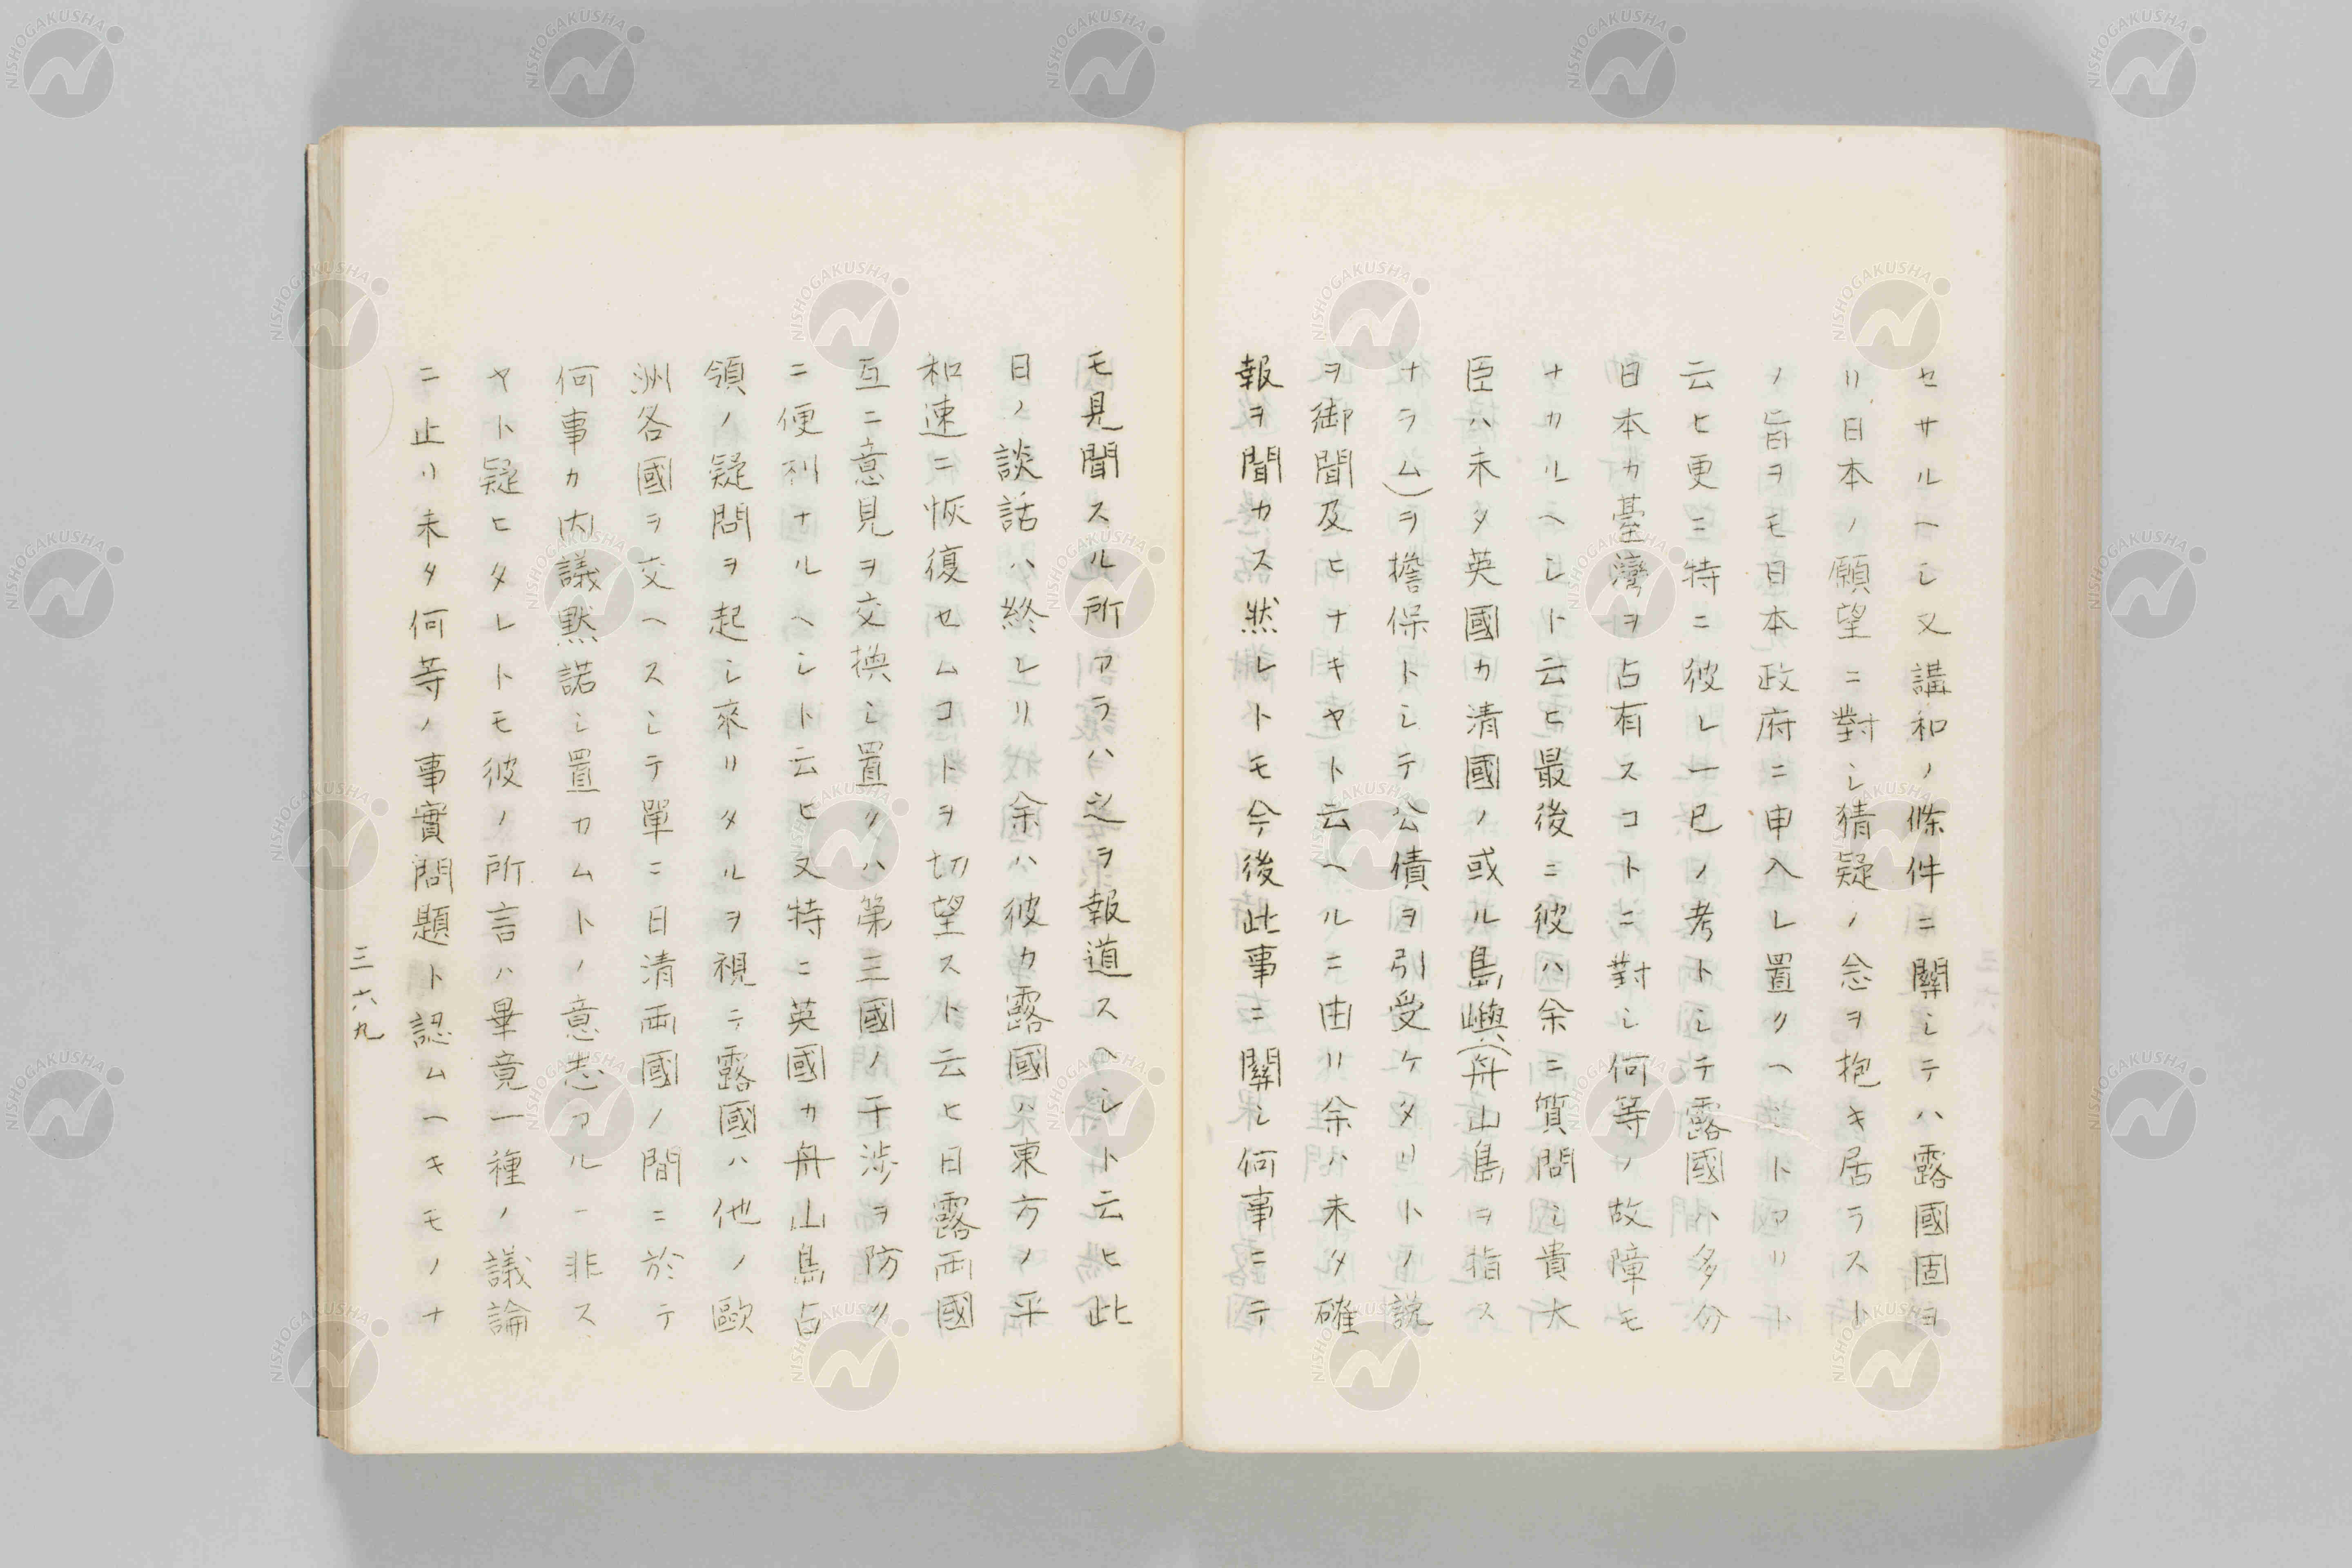 セサルヘシ又講和ノ條件ニ關シテハ露國固ヨ
リ日本ノ願望ニ對シ猜疑ノ念ヲ抱キ居ラスト
ノ旨ヲモ日本政府ニ申入レ置クヘシトアリト
云ヒ更ニ特ニ彼レ一已ノ考トシテ露國ハ多分
日本カ臺灣ヲ占有スコトニ對シ何等ノ故障モ
ナカルヘシト云ヒ最後ニ彼ハ余ニ質問シ貴大
臣ハ未タ英國カ清國ノ或ル島嶼(舟山島ヲ指ス
ナラム)ヲ擔保トシテ公債ヲ引受ケタリトノ說
ヲ御聞及ヒナキヤト云ヘルニ由リ余ハ未タ確
報ヲ聞カス然レトモ今後此事ニ關シ何事ニテ
モ見聞スル所アラハ之ヲ報道スヘシト云ヒ此
日ノ談話ハ終レリ
余ハ彼カ露國ハ東方ノ平
和速ニ恢復セムコトヲ切望スト云ヒ日露両國
互ニ意見ヲ交換シ置クハ第三國ノ干涉ヲ防クニ
便利ナルヘシト云ヒ又特ニ英國カ舟山島占
領ノ疑問ヲ起シ來リタルヲ視テ露國ハ他ノ歐
洲各國ヲ交ヘスシテ單ニ日清両國ノ間ニ於テ
何事カ内議黙諾シ置カムトノ意志アルニ非ス
ヤト疑ヒタレトモ彼ノ所言ハ畢竟一種ノ議論
ニ止リ未タ何等ノ事實問題ト認ムヘキモノナ
三六九
NISHOGAKUSHA